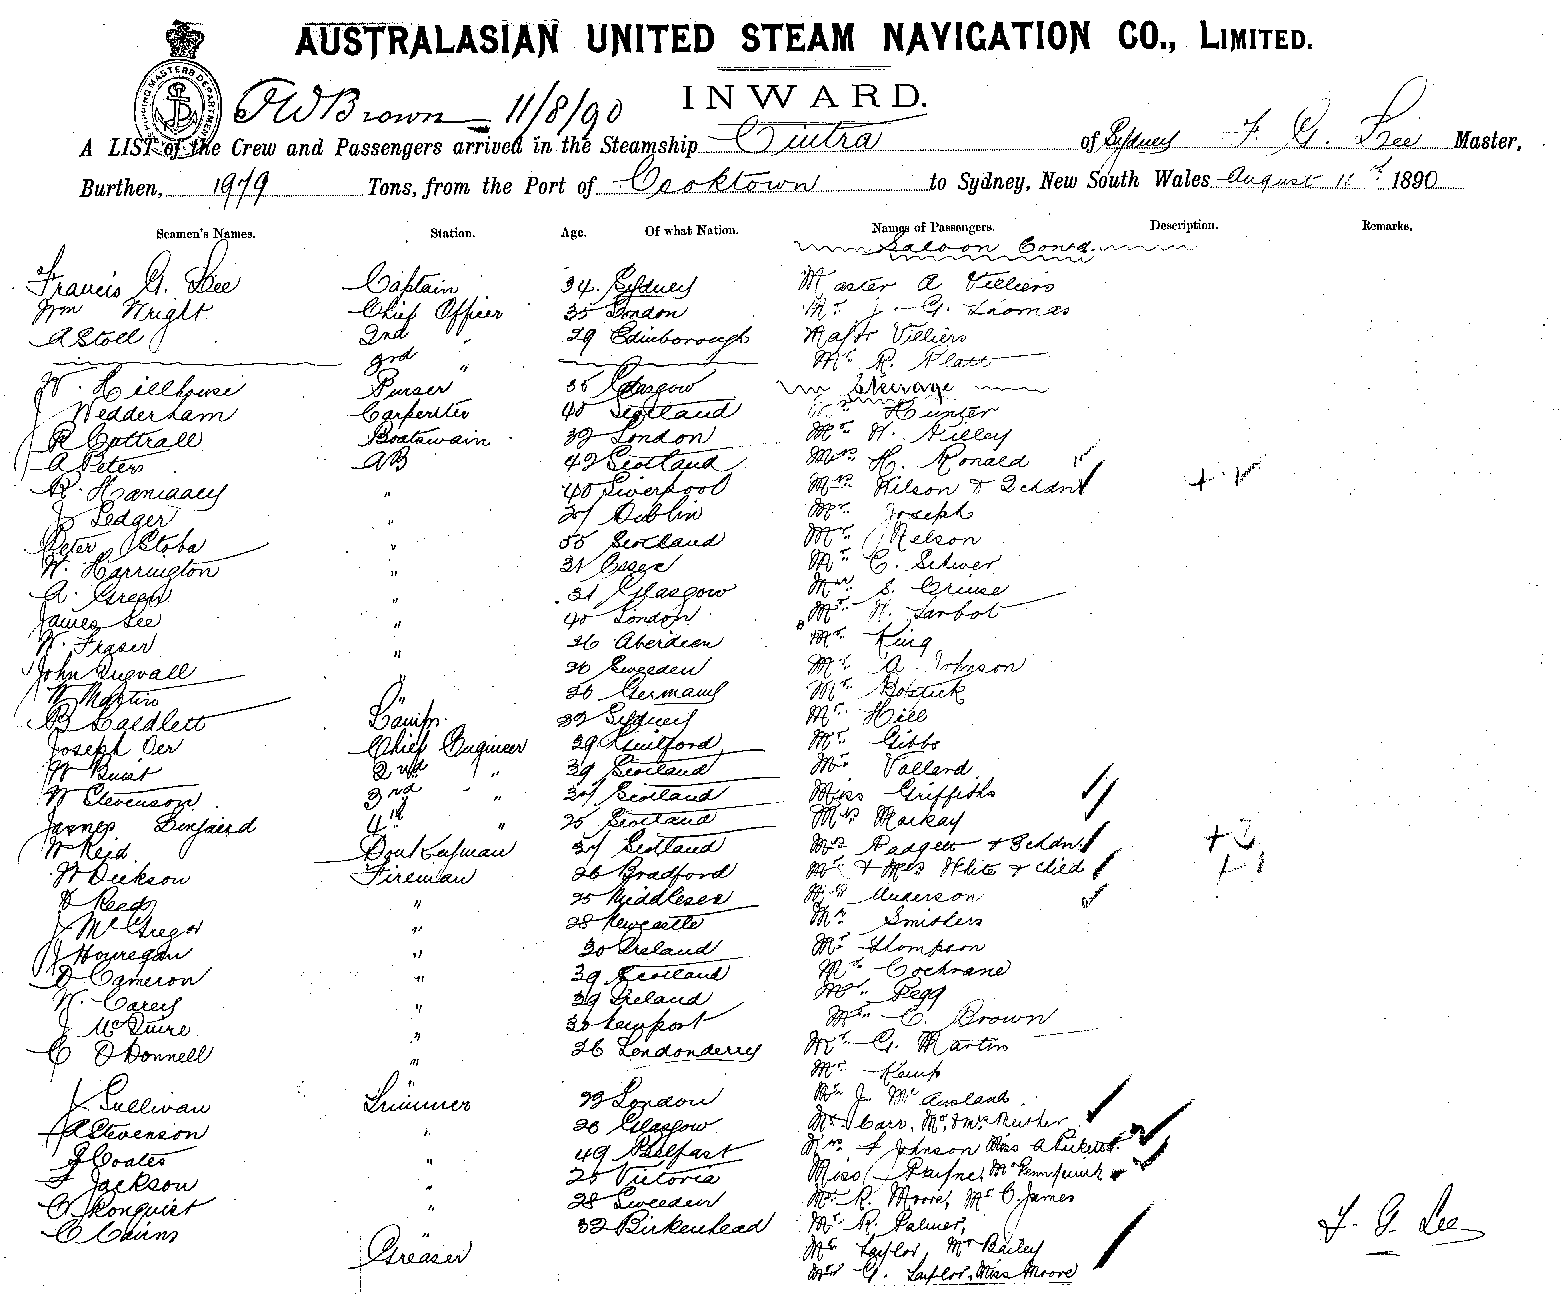 AUSTRALASIAN UNITED STEAM NAVIGATION CO., LIMITED.
SHIPPING MASTERS DEPARTMENT
INWARD.
Brown 11/8/90
A LIST of the Crew and Passengers arrived in the Steamship Cintra of Sydney F. G. Lee Master,
Burthen, 1979 Tons, from the Port of Cooktown to Sydney, New South Wales August 11th 1890
Seamen's Names. Station. Age. Of what Nation. Names of Passengers. Description. Remarks.
Saloon Contd.
Francis G. Lee Captain 34 Sydney Master A Villiers
Wm Wright Chief Officer 35 London Mr J. G. Thomas
A Stoll 2nd " 29 Edinborough Major Villiers
3rd " Mr R. Platt
W. Hillhouse Purser 35 Glasgow Steerage
J Wedderham Carpenter 40 Scotland Hunter
R Cottrall Boatswain 32 London Mr W.
A Peters AB 42 Scotland Mrs H. Ronald
R. " 40 Liverpool Mrs Wilson & 2 chdn + 2
J Ledger " Dublin Mr Joseph
Peter Stoba " 55 Scotland Mr Nelson
W. Harrington " 31 Essex Mr C.
A. Green " 31 Glasgow S.
James Lee " 40 London Mr
W. Fraser " 26 Aberdeen Mr King
John " 20 Sweeden Mr A. Johnson
W Martin " 20 Germany Mr Bostick
B Lamps. 32 Sydney Mr Hill
Joseph Oer Chief Engineer 29 Guilford Mr Gibbs
W Buist 2nd " 39 Scotland Mr
W Stevenson 3rd " Scotland Miss Griffiths
James 4th " 25 Scotland Mrs Mackay
W Reid Scotland Mrs Padgett & 3 chdn + 3
W Dickson Fireman 26 Bradford Mr & Mrs White & child + 1
Reed " 25 Middlesex Anderson
J McGregor " 28 Newcastle Mr Smithers
J Houregan " 30 Ireland Mr Thompson
D Cameron " 39 Scotland Mr Cochrane
W. Carey " 39 Ireland Mr Pegg
J McGuire " Newport Mr C. Brown
C O'Donnell " 26 Londonderry Mr G. Martin
" Mr Kemp
J. Sullivan Trimmer 22 London Mr J. Mc
A Stevenson " 26 Glasgow Mr Carr,
J Coates " 49 Belfast F Johnson Miss A
F Jackson " 25 Victoria Miss Payne,
C Cronquist " 28 Sweeden Mr R. Moore, Mr C. James
C Cairns " 32 Birkenhead Mr R. Palmer,
Greaser Mr Taylor, Mr Bailey
Mrs G. Taylor, Miss Moore
F. G. Lee